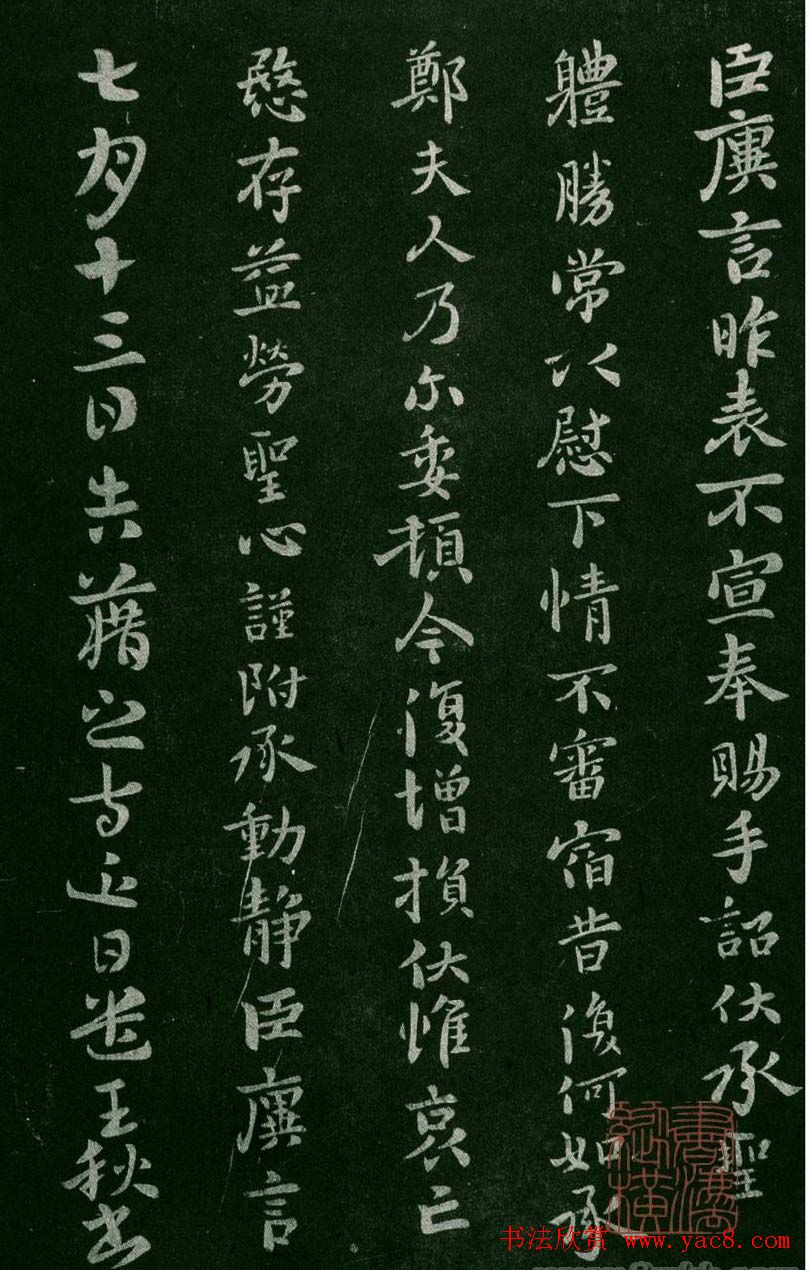 臣廙言昨表不宣奉賜手詔伏承聖
體勝常以慰下情不審宿昔復何如承
鄭夫人乃尒委頓今復增損伏惟哀亡
愍存益勞聖心謹附承動静臣廙言
七月十三日告藉之等近日遣王秋書
书法欣赏 www.yac8.com